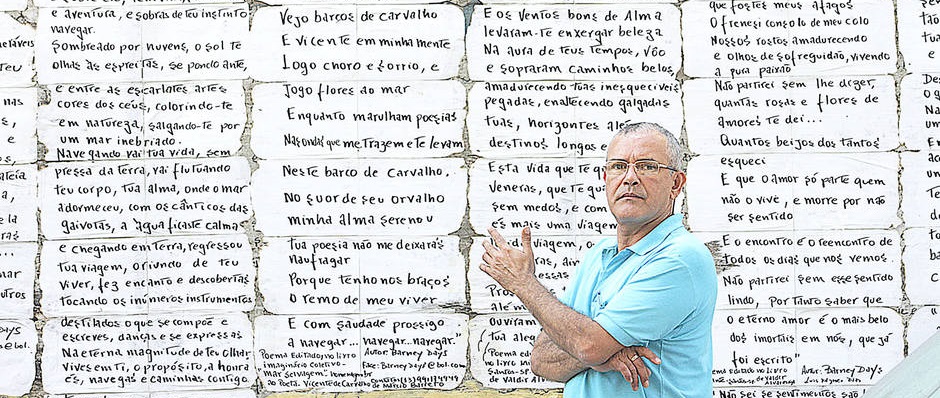 a aventura, e sobras de teu instinto
navegar.
Sombreado por nuvens, o sol te
olhas às espreitas, se pondo ante,
e entre as escarlates artes
cores dos céus, colorindo-te
em natureza, salgando-te por
um mar inebriado.
Navegando vai tua vida, sem
pressa da terra, vai flutuando
teu corpo, tua alma, onde o mar
adormeceu, com os cânticos das
gaivotas, a água ficaste calma
e chegando em terra, regressou
tua viagem, oriundo de teu
viver, fez encanto e descobertas
tocando os inúmeros instrumentos
destilados o que se compõe e
escreves, danças e se expressas
Na eterna magnitude de teu olhar
vives em ti, o propósito, a honra
és, navegas e caminhas contigo.
Vejo barcos de carvalho
E vicente em minha mente
Logo choro e sorrio, e
Jogo flores ao mar
Enquanto marulham poesias
Nas ondas que me trazem e te levam
Neste barco de Carvalho.
No suor de seu orvalho
minha alma serenou
Tua poesia não me deixarás
naufragar
Porque tenho nos braços
O remo de meu viver
E com saudade prossigo
a navegar... navegar... navegar."
Poema Editado, no livro
imaginário coletivo-
mar selvagem."
Autor: Barney Days
Face: Barney Days@bol.com
ao Poeta. Vicente de Carvalho
de Márcio Barreto
E os ventos bons de Alma
levaram-te enxergar beleza
Na aura de teus tempos, vôo
e sopraram caminhos belos,
amadurecendo tuas inesquecíveis
pegadas, enaltecendo galgadas
tuas, horizontes
destinos longos
Esta vida que te
veneras, que te
sem medos, e com
és mais uma viagem
viagem,
Ouviram
tua
(Poema
edita
Santos-SP
de Valdir
que fostes meus afagos
O frenesi consolo de meu colo
Nossos rostos amadurecendo
e olhos de sofreguidão, vivendo
a pura paixão
Não partirei sem lhe dizer,
quantas rosas e flores de
amores te dei...
Quantos beijos dos tantos
esqueci
E que o amor só parte quem
não o vive, e morre por não
ser sentido
E o encontro é o reencontro de
todos os dias que nos vemos.
Não partirei sem esse sentido
lindo, por tanto saber que
O eterno amor é o mais belo
dos imortais em nós, que já
foi escrito"
Autor: Barney Days
Não sei se sentimentos são